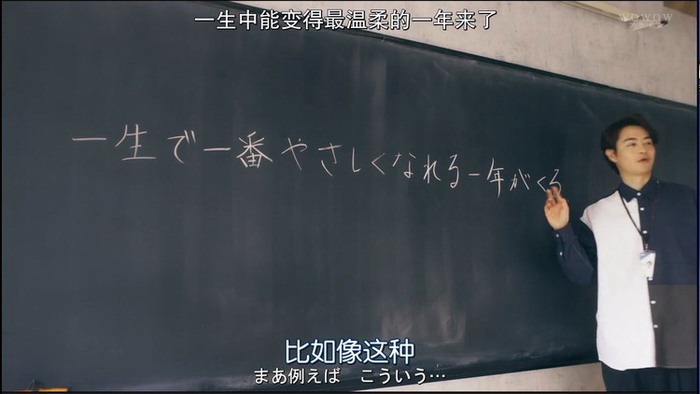 一生中能变得最温柔的一年来了
wowow
一生で一番やさしくなれる一年がくる
比如像这种
まあ例えば　こういう…